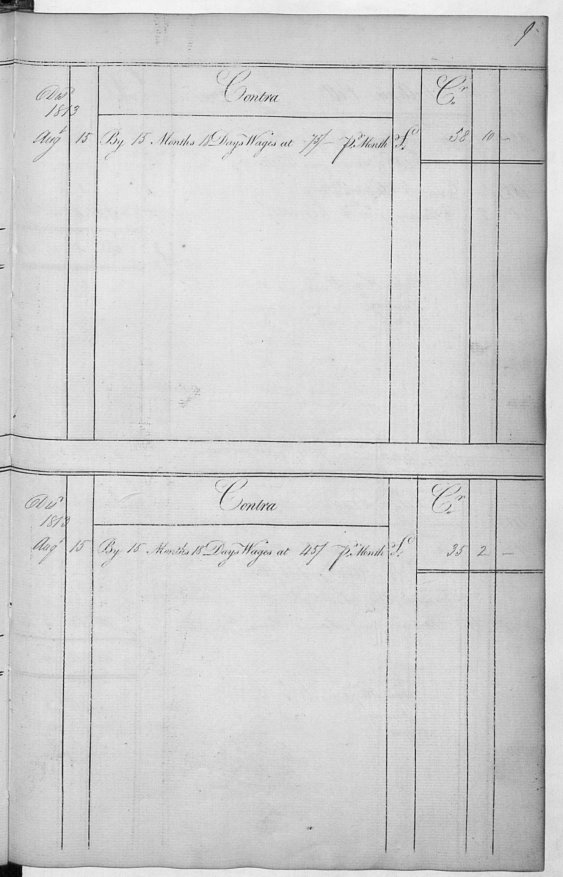 9
1813
Contra
Cr
Augt 15 By 15 Months 18 Days Wages at 75/- pr Month £ 58 10 –
Contra
Cr
1813
Augt 15 By 15 Months 18 Days Wages at 45/ pr Month £ 35 2 –